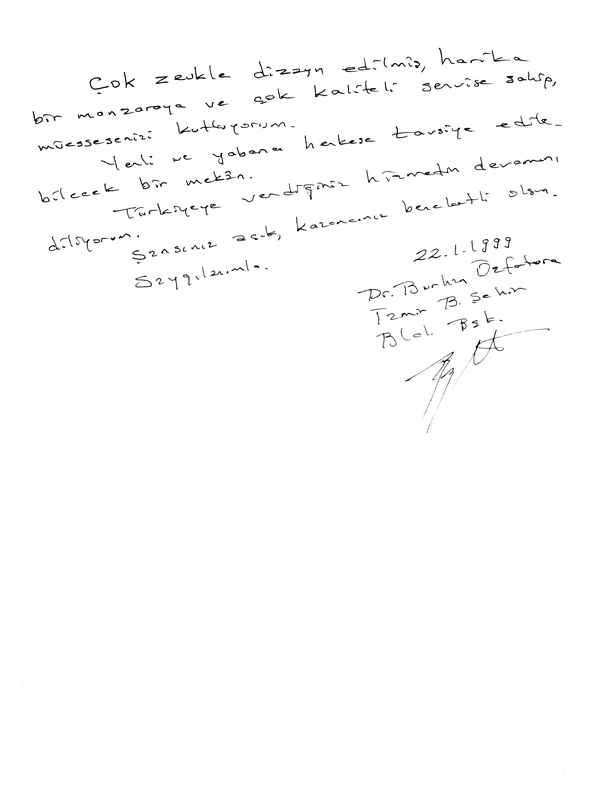 Çok zevkle dizayn edilmiş, harika
bir manzaraya ve çok kaliteli servise sahip,
müessesenizi kutluyorum.
Yerli ve yabancı herkese tavsiye edile-
bilecek bir mekân.
Türkiyeye verdiğiniz hizmetin devamını
diliyorum.
Şansınız açık, kazancınız bereketli olsun.
Saygılarımla.
22.1.1999
Dr. Burhan Özfatura
İzmir B. Şehir
Bld. Bşk.